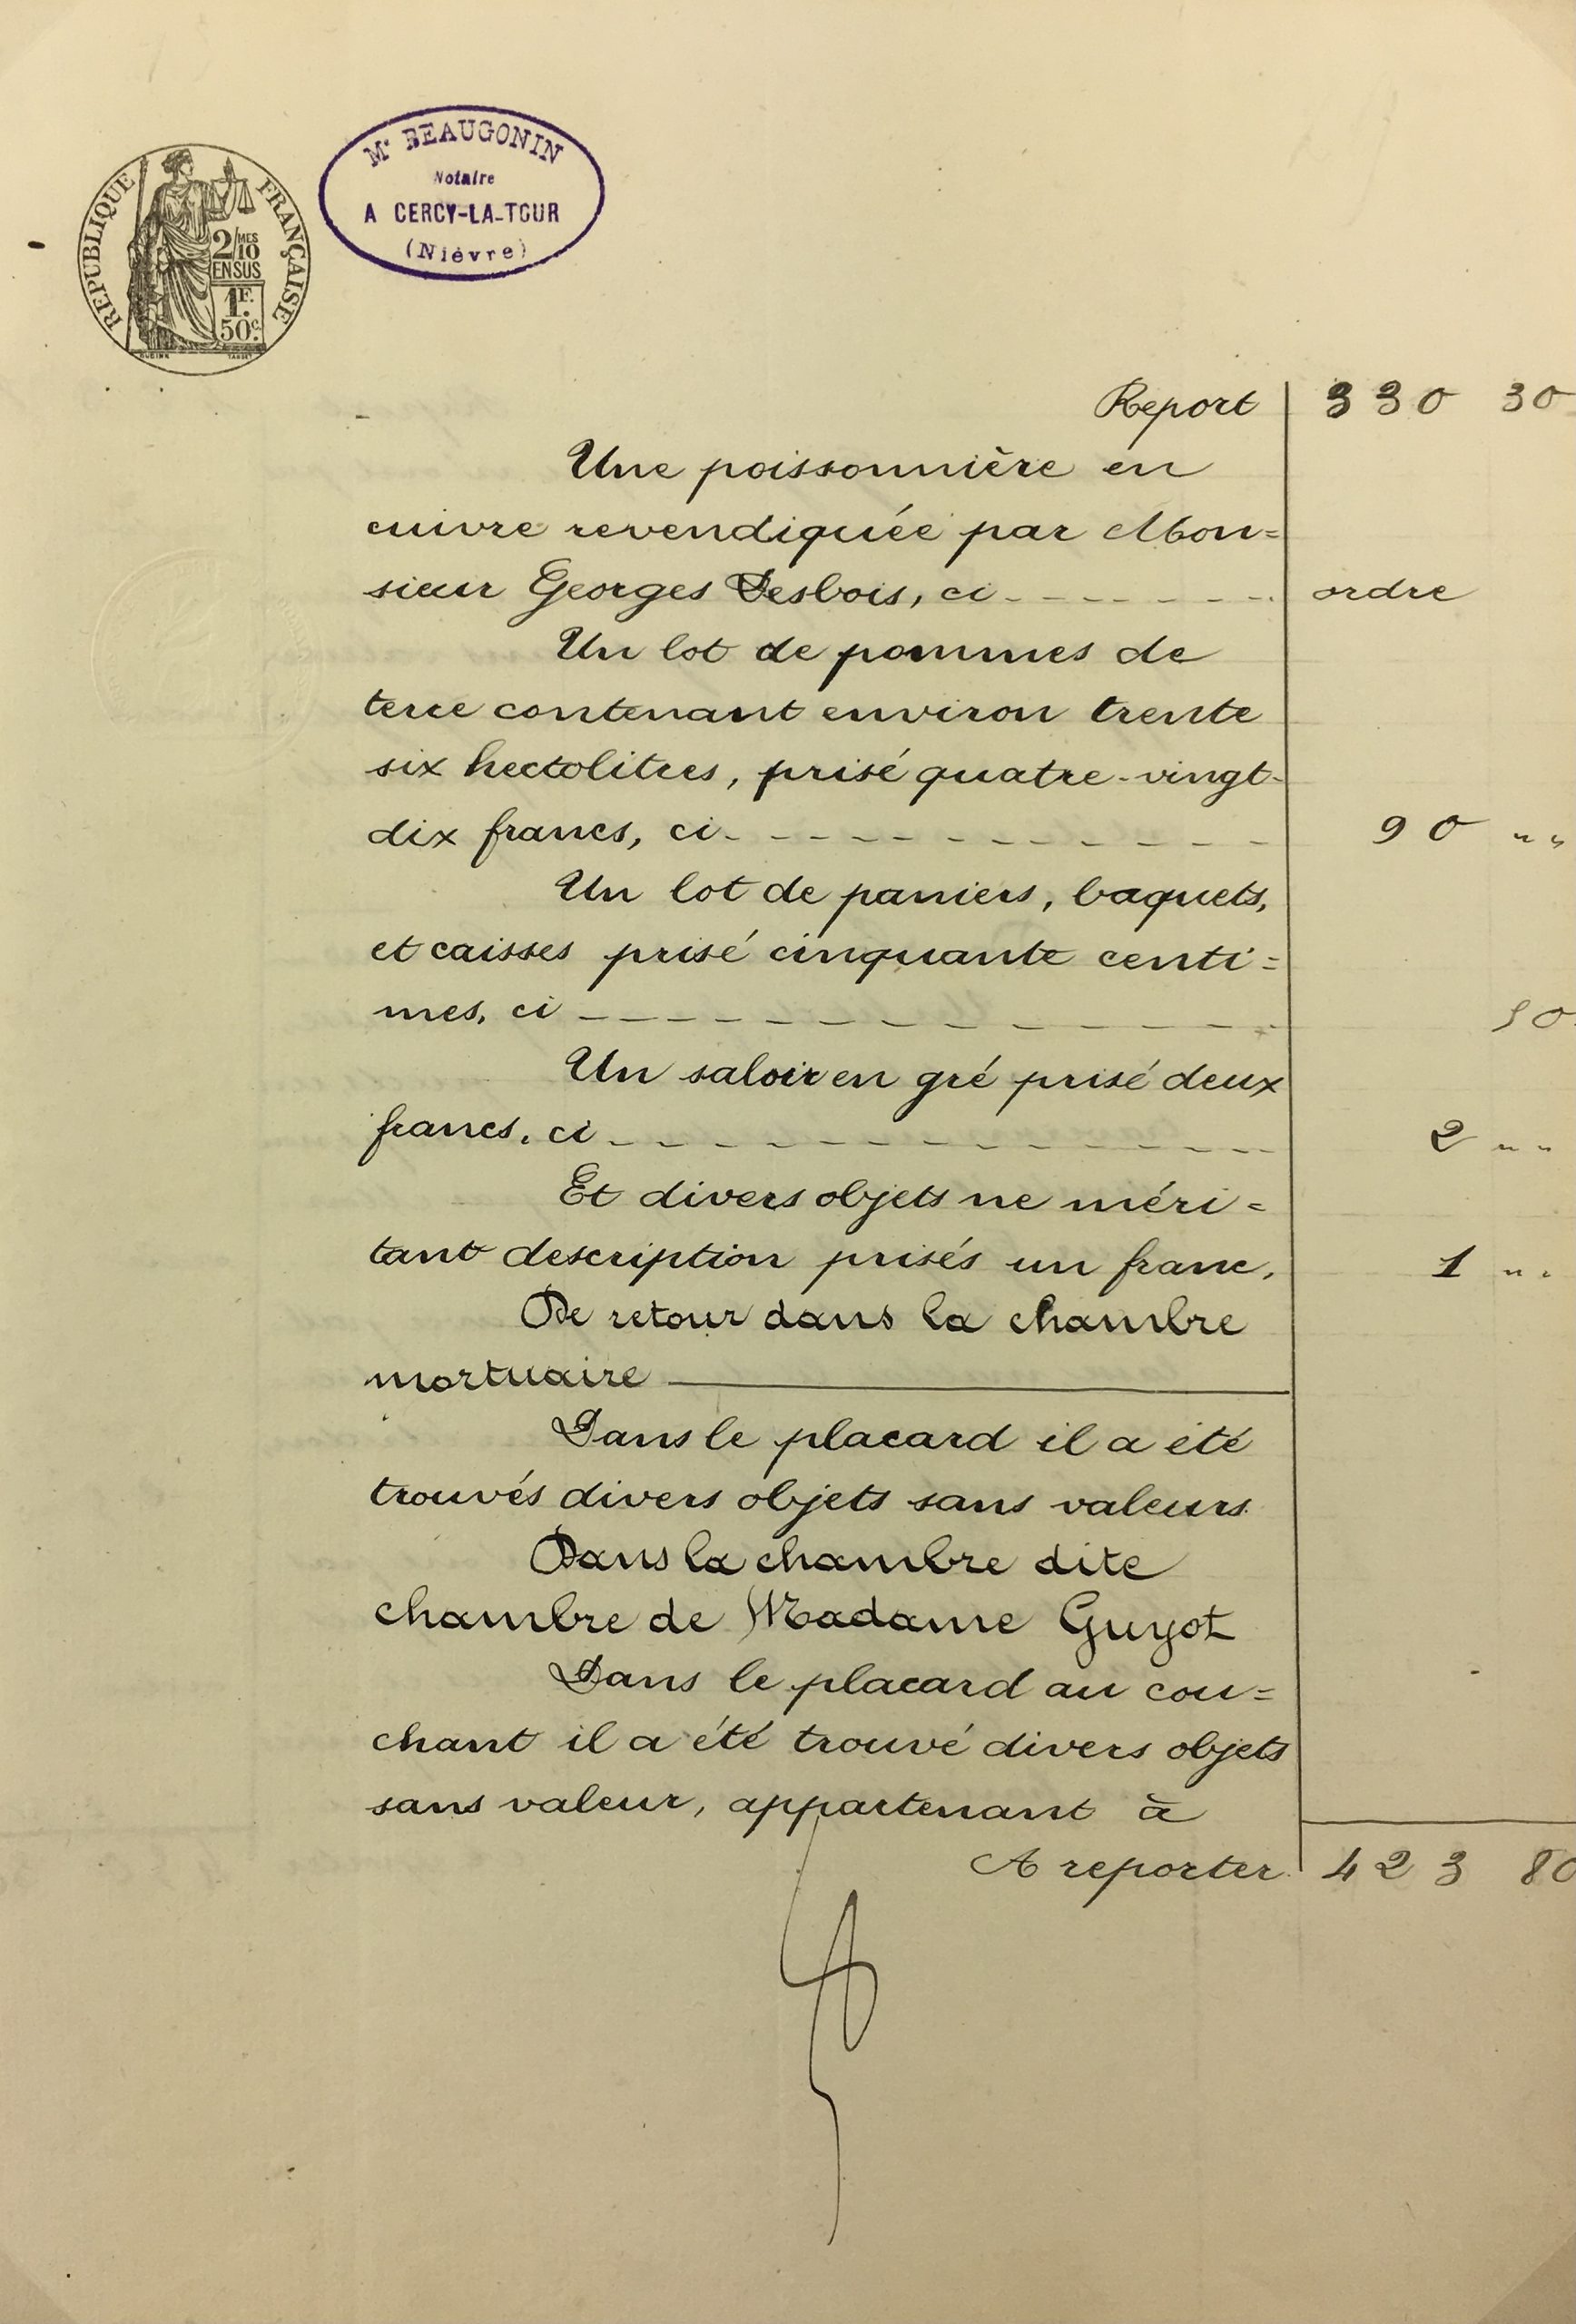 RÉPUBLIQUE FRANÇAISE
2/MES 10
EN SUS
1F.
50c.
Me BEAUGONIN
Notaire
A CERCY-LA-TOUR
(Nièvre)
Report 330 30
Une poissonnière en
cuivre revendiquée par Mon=
sieur Georges Desbois, ci ordre
Un lot de pommes de
terre contenant environ trente
six hectolitres, prisé quatre-vingt-
dix francs, ci 90 " "
Un lot de paniers, baquets,
et caisses prisé cinquante centi=
mes, ci 50
Un saloir en gré prisé deux
francs, ci 2 " "
Et divers objets ne méri=
tant description prisés un franc, 1 " "
De retour dans la chambre
mortuaire
Dans le placard il a été
trouvés divers objets sans valeurs.
Dans la chambre dite
chambre de Madame Guyot
Dans le placard au cou=
chant il a été trouvé divers objets
sans valeur, appartenant à
A reporter 423 80